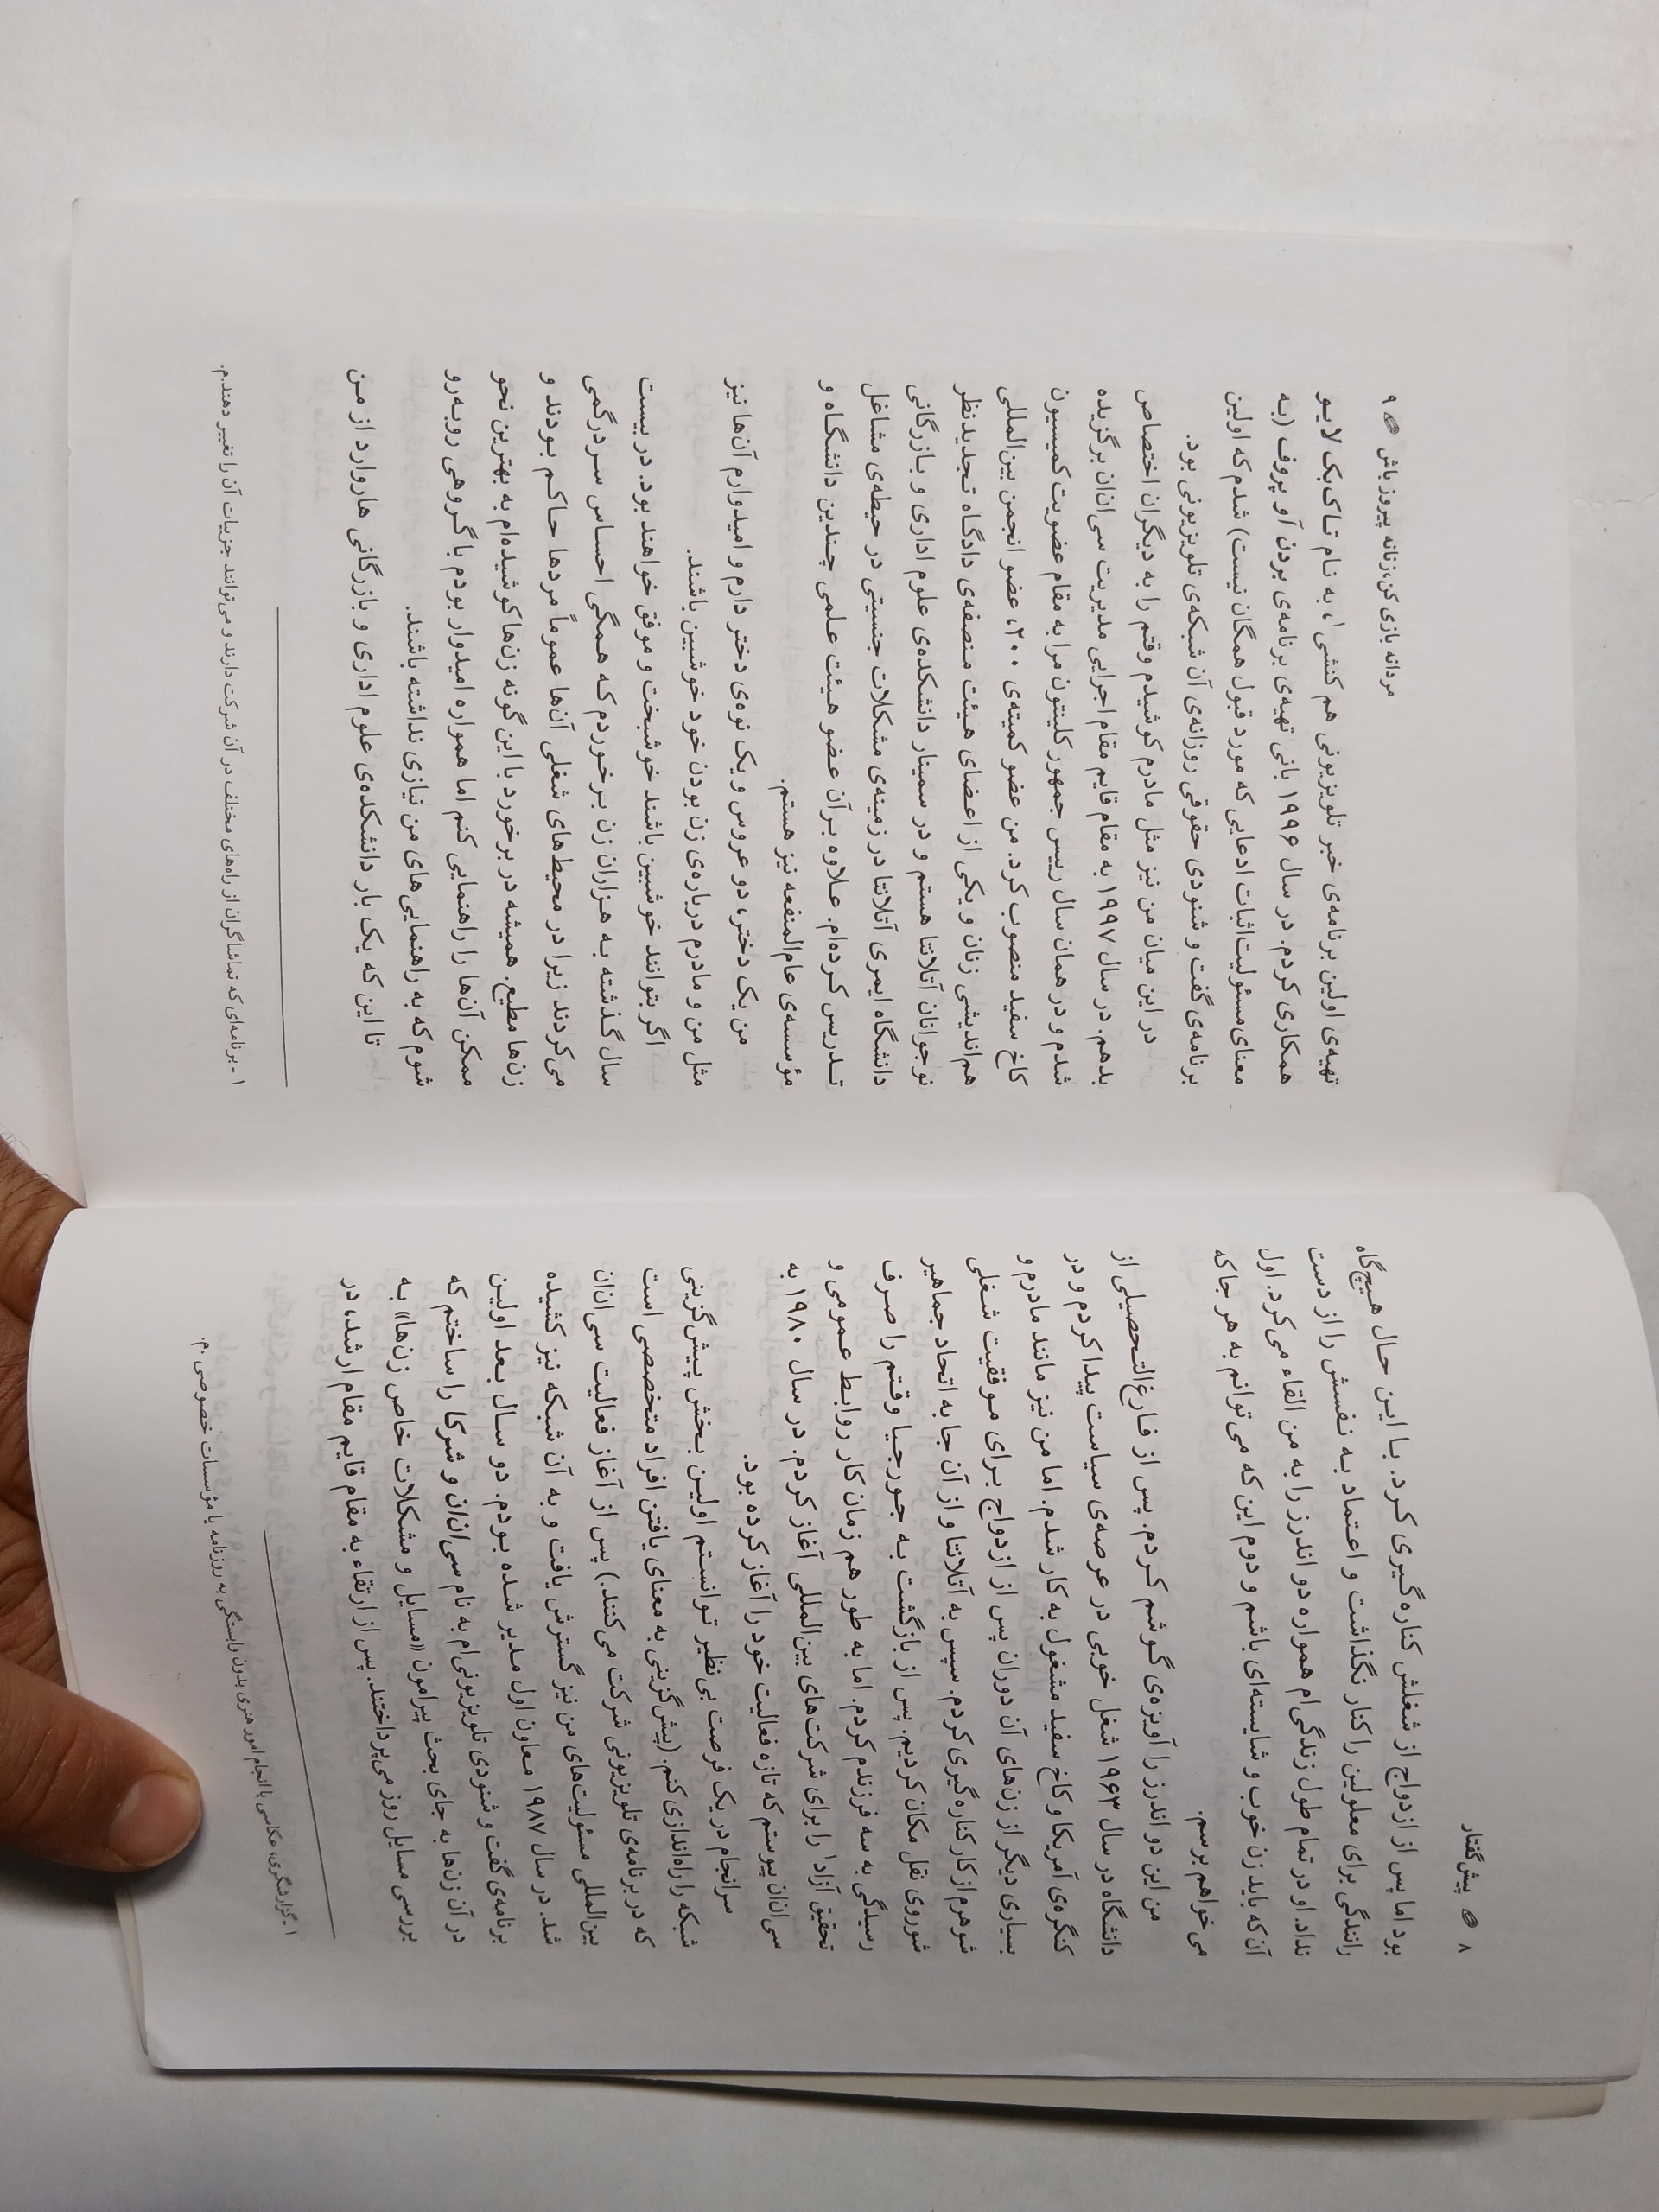 ۸ پیش‌گفتار
بود اما پس از ازدواج از شغلش کناره‌گیری کرد. با این حال هیچ‌گاه
رانندگی برای معلولین را کنار نگذاشت و اعتماد به نفسش را از دست
نداد. او در تمام طول زندگی‌ام همواره دو اندرز را به من القاء می‌کرد. اول
آن که باید زن خوب و شایسته‌ای باشم و دوم این که می‌توانم به هر جا که
می‌خواهم برسم.
من این دو اندرز را آویزه‌ی گوشم کردم. پس از فارغ‌التحصیلی از
دانشگاه در سال ۱۹۶۳ شغل خوبی در عرصه‌ی سیاست پیدا کردم و در
کنگره‌ی آمریکا و کاخ سفید مشغول به کار شدم. اما من نیز مانند مادرم و
بسیاری دیگر از زن‌های آن دوران پس از ازدواج برای موفقیت شغلی
شوهرم از کار کناره‌گیری کردم. سپس به آتلانتا و از آن جا به اتحاد جماهیر
شوروی نقل مکان کردیم. پس از بازگشت به جورجیا وقتم را صرف
رسیدگی به سه فرزندم کردم. اما به طور هم زمان کار روابط عمومی و
تحقیق آزاد۱ را برای شرکت‌های بین‌المللی آغاز کردم. در سال ۱۹۸۰ به
سی‌ان‌ان پیوستم که تازه فعالیت خود را آغاز کرده بود.
سرانجام در یک فرصت بی‌نظیر توانستم اولین بخش پیش‌گزینی
شبکه را راه‌اندازی کنم. (پیش‌گزینی به معنای یافتن افراد متخصصی است
که در برنامه‌ی تلویزیونی شرکت می‌کنند.) پس از آغاز فعالیت سی‌ان‌ان
بین‌المللی مسئولیت‌های من نیز گسترش یافت و به آن شبکه نیز کشیده
شد. در سال ۱۹۸۷ معاون اول مدیر شده بودم. دو سال بعد اولین
برنامه‌ی گفت و شنودی تلویزیونی‌ام به نام سی‌ان‌ان و شرکا را ساختم که
در آن زن‌ها به جای بحث پیرامون «مسایل و مشکلات خاص زن‌ها» به
بررسی مسایل روز می‌پرداختند. پس از ارتقاء به مقام قایم مقام ارشد، در
۱- گزارشگری، عکاسی یا انجام امور هنری بدون وابستگی به روزنامه یا مؤسسات خصوصی .م.
مردانه بازی کن، زنانه پیروز باش ۹
تهیه‌ی اولین برنامه‌ی خبر تلویزیونی هم کنشی۱، به نام تاک‌بک لایو
همکاری کردم. در سال ۱۹۹۶ بانی تهیه‌ی برنامه‌ی بردن آو پروف (به
معنای مسئولیت اثبات ادعایی که مورد قبول همگان نیست) شدم که اولین
برنامه‌ی گفت و شنودی حقوقی روزانه‌ی آن شبکه‌ی تلویزیونی بود.
در این میان من نیز مثل مادرم کوشیدم وقتم را به دیگران اختصاص
بدهم. در سال ۱۹۹۷ به مقام قایم مقام اجرایی مدیریت سی‌ان‌ان برگزیده
شدم و در همان سال رییس جمهور کلینتون مرا به مقام عضویت کمیسیون
کاخ سفید منصوب کرد. من عضو کمیته‌ی ۲۰۰، عضو انجمن بین‌المللی
هم‌اندیشی زنان و یکی از اعضای هیئت منصفه‌ی دادگاه تجدیدنظر
نوجوانان آتلانتا هستم و در سمینار دانشکده‌ی علوم اداری و بازرگانی
دانشگاه ایمری آتلانتا در زمینه‌ی مشکلات جنسیتی در حیطه‌ی مشاغل
تدریس کرده‌ام. علاوه بر آن عضو هیئت علمی چندین دانشگاه و
مؤسسه‌ی عام‌المنفعه نیز هستم.
من یک دختر، دو عروس و یک نوه‌ی دختر دارم و امیدوارم آن‌ها نیز
مثل من و مادرم درباره‌ی زن بودن خود خوشبین باشند.
اگر بتوانند خوشبین باشند خوشبخت و موفق خواهند بود. در بیست
سال گذشته به هزاران زن برخوردم که همگی احساس سردرگمی
می‌کردند زیرا در محیط‌های شغلی آن‌ها عموماً مردها حاکم بودند و
زن‌ها مطیع. همیشه در برخورد با این گونه زن‌ها کوشیده‌ام به بهترین نحو
ممکن آن‌ها را راهنمایی کنم اما همواره امیدوار بودم با گروهی روبه‌رو
شوم که به راهنمایی‌های من نیازی نداشته باشند.
تا این که یک بار دانشکده‌ی علوم اداری و بازرگانی هاروارد از من
۱- برنامه‌ای که تماشاگران از راه‌های مختلف در آن شرکت دارند و می‌توانند جزییات آن را تغییر دهند.م.